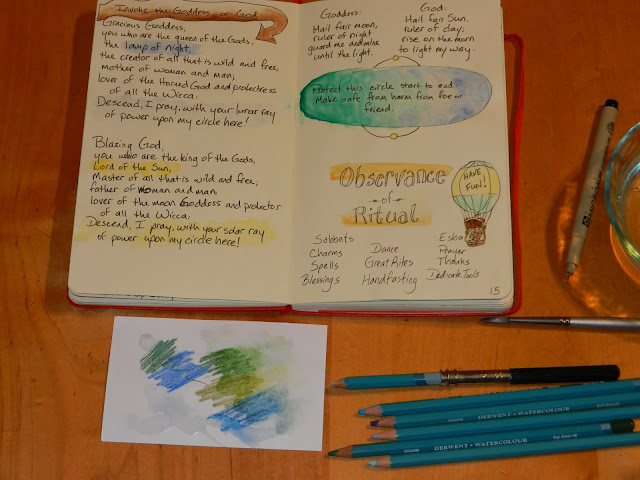 Invoke the Goddess or God
Gracious Goddess,
you who are the queen of the Gods,
the lamp of night,
the creator of all that is wild and free;
mother of woman and man;
lover of the Horned God and protectress
of all the Wicca.
Descend, I pray, with your lunar ray
of power upon my circle here!
Blazing God,
you who are the king of the Gods,
Lord of the Sun,
Master of all that is wild and free;
father of woman and man,
lover of the moon Goddess and protector
of all the Wicca;
Descend, I pray, with your solar ray
of power upon my circle here!
Goddess:
Hail fair moon,
ruler of night
guard me and mine
until the light.
God:
Hail fair Sun.
ruler of day;
rise on the morn
to light my way.
Protect this circle start to end
Make safe from harm from foe or
friend.
Observance
of
Ritual
HAVE
FUN!
Sabbats
Charms
Spells
Blessings
Dance
Great Rites
Handfasting
Esba
Prayer
Thanks
Dedicate Tools
15
DERWENT WATERCOLOUR
DERWENT WATERCOLOUR